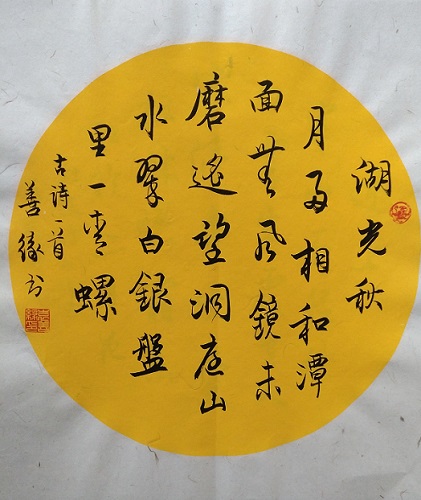 湖光秋
月两相和潭
面無风鏡未
磨遥望洞庭山
水翠白銀盤
里一青螺
古诗一首
善缘书